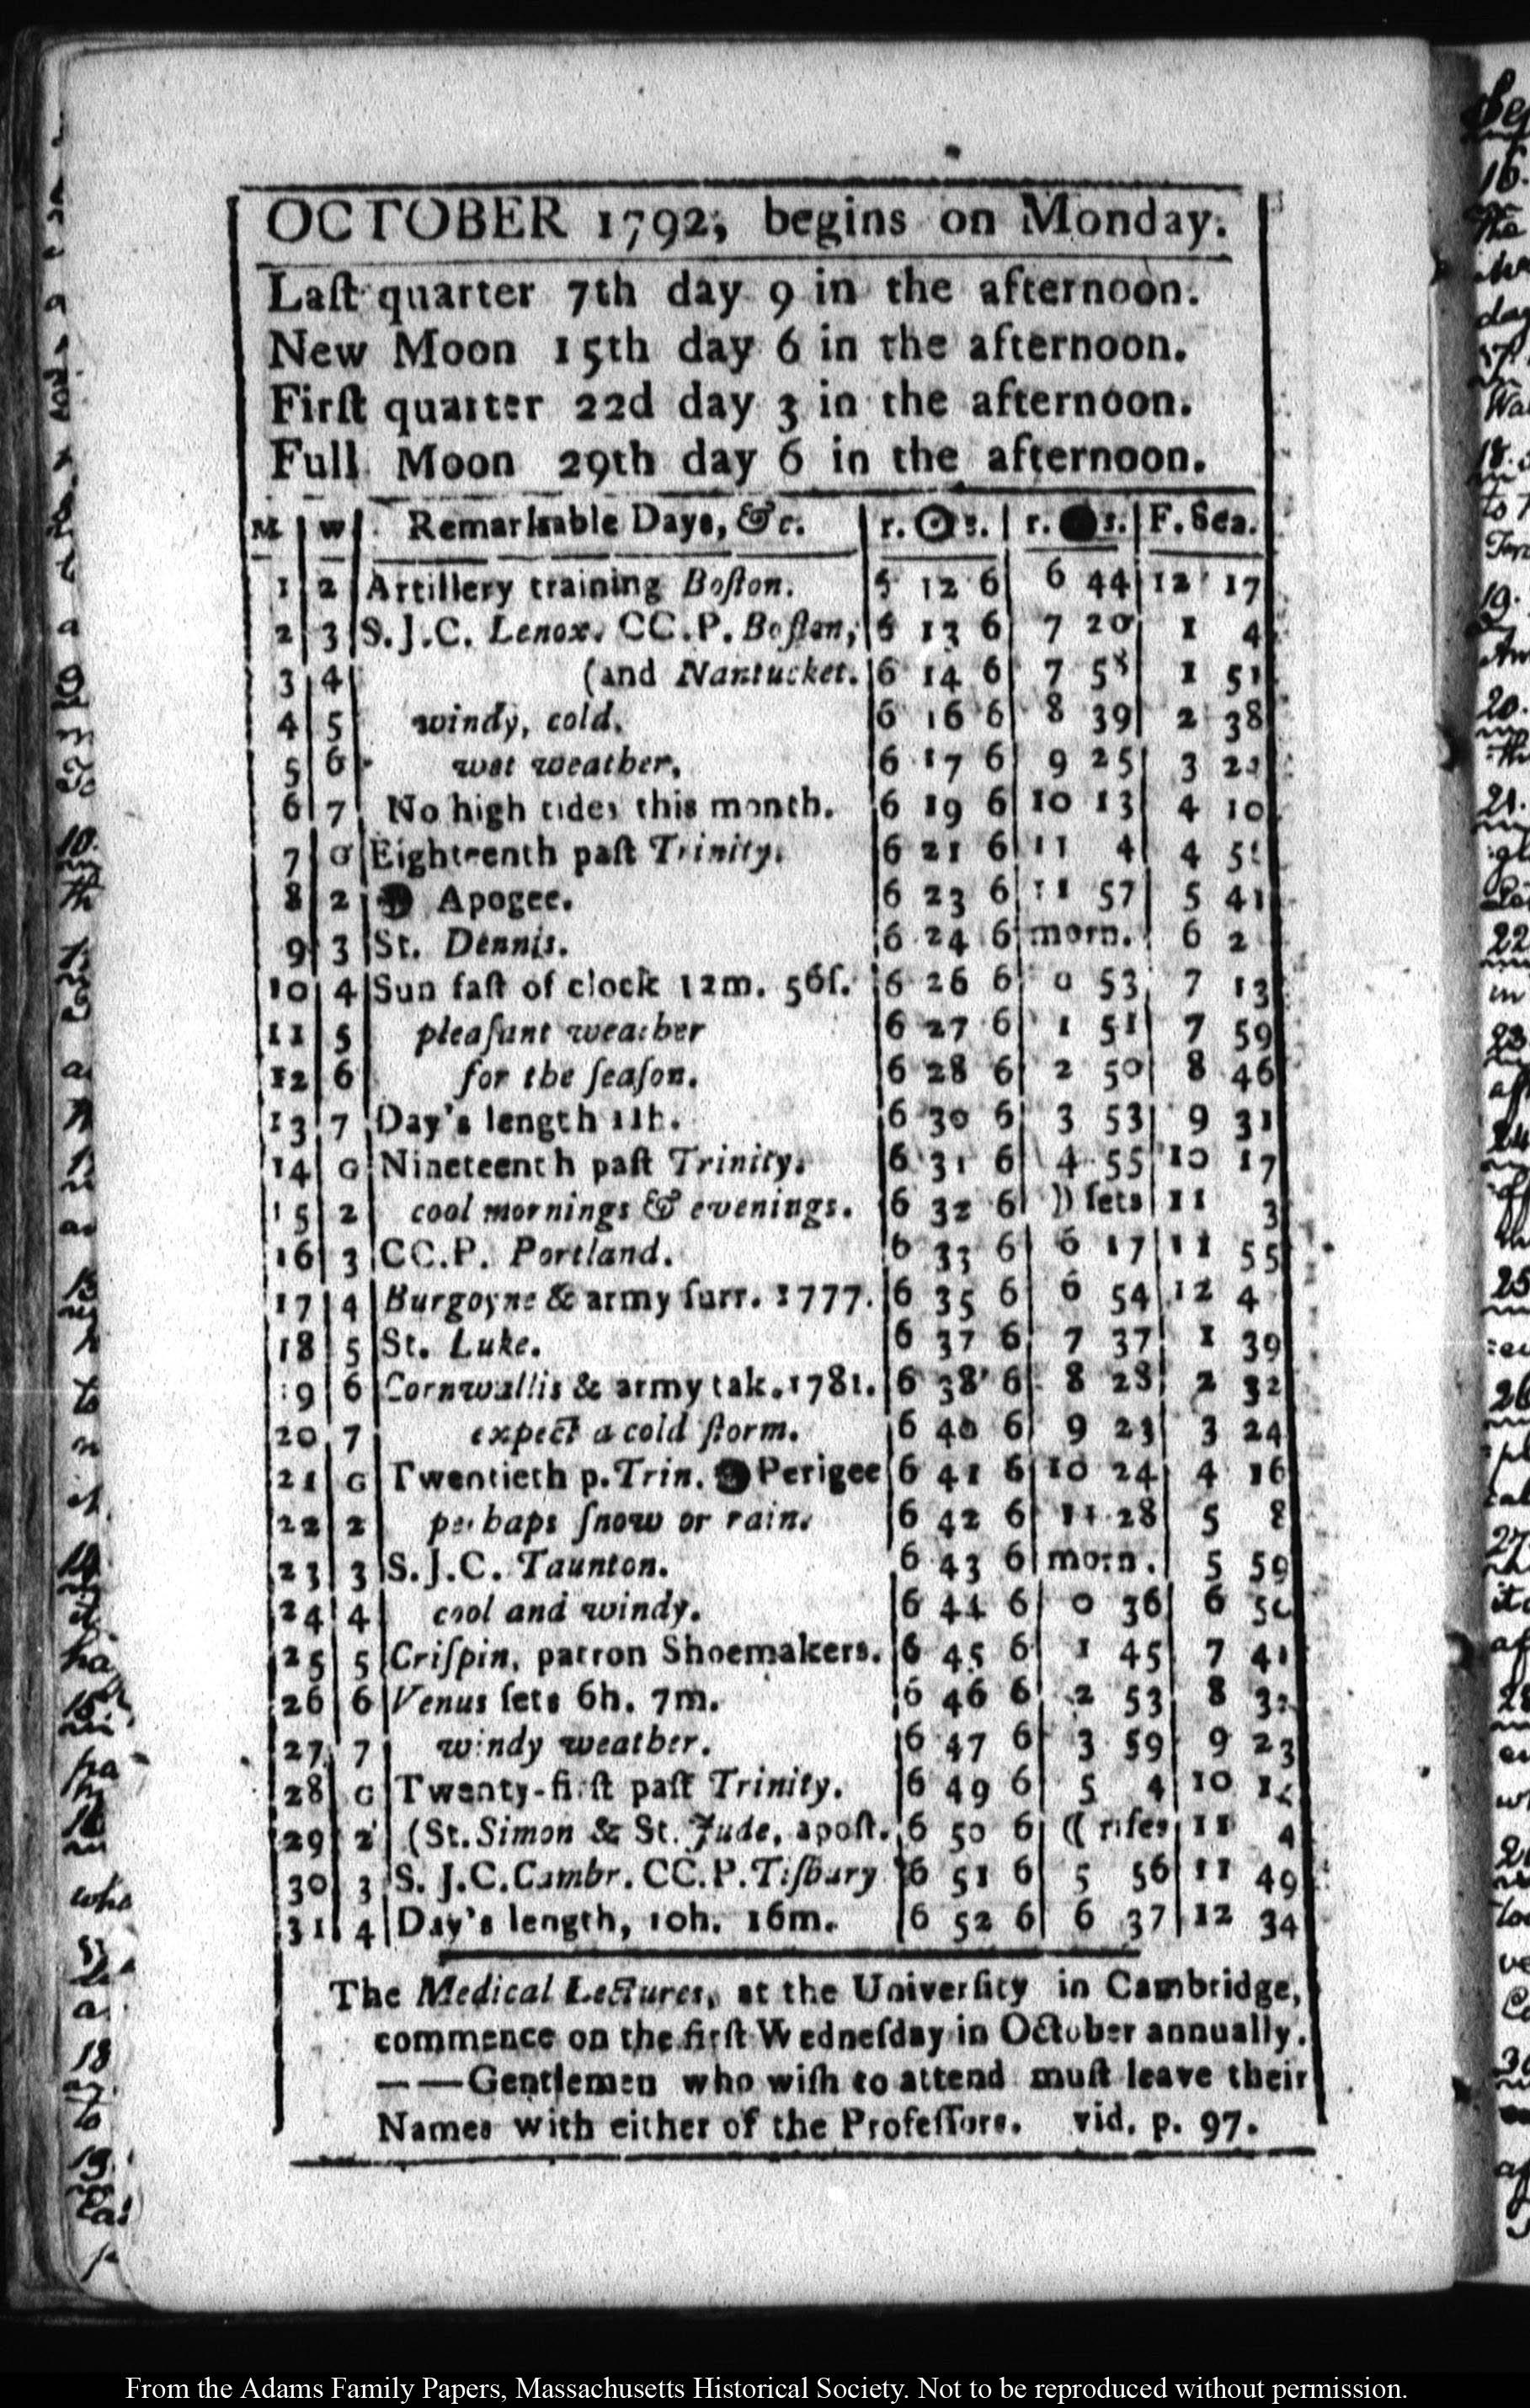 OCTOBER 1792; begins on Monday.
Laſt quarter 7th day 9 in the afternoon.
New Moon 15th day 6 in the afternoon.
Firſt quarter 22d day 3 in the afternoon.
Full Moon 29th day 6 in the afternoon.
M W Remarkable Days, &c. r. ☉ s. r. s. F. Sea.
1 2 Artillery training Boſton. 5 12 6 6 44 12 17
2 3 S.J.C. Lenox. CC.P. Boſton, 6 13 6 7 20 1 4
3 4 (and Nantucket. 6 14 6 7 58 1 51
4 5 windy, cold. 6 16 6 8 39 2 38
5 6 wet weather, 6 17 6 9 25 3
6 7 No high tides this month. 6 19 6 10 13 4 10
7 G Eighteenth paſt Trinity. 6 21 6 11 4 4
8 2 Apogee. 6 23 6 11 57 5 41
9 3 St. Dennis. 6 24 6 morn. 6 2
10 4 Sun faſt of clock 12m. 56ſ. 6 26 6 0 53 7 13
11 5 pleaſant weather 6 27 6 1 51 7 59
12 6 for the ſeaſon. 6 28 6 2 50 8 46
13 7 Day's length 11h. 6 30 6 3 53 9 31
14 G Nineteenth paſt Trinity. 6 31 6 4 55 10 17
15 2 cool mornings & evenings. 6 32 6 )) ſets 11 3
16 3 CC.P. Portland. 6 33 6 6 17 11 55
17 4 Burgoyne & army ſurr. 1777. 6 35 6 6 54 12 4
18 5 St. Luke. 6 37 6 7 37 1 39
19 6 Cornwallis & army tak. 1781. 6 38 6 8 28 2 32
20 7 expect a cold ſtorm. 6 40 6 9 23 3 24
21 G Twentieth p. Trin. Perigee 6 41 6 10 24 4 16
22 2 perhaps ſnow or rain. 6 42 6 11 28 5 8
23 3 S.J.C. Taunton. 6 43 6 morn. 5 59
24 4 cool and windy. 6 44 6 0 36 6 50
25 5 Criſpin, patron Shoemakers. 6 45 6 1 45 7 41
26 6 Venus ſets 6h. 7m. 6 46 6 2 53 8
27 7 windy weather. 6 47 6 3 59 9 23
28 G Twenty-firſt paſt Trinity. 6 49 6 5 4 10
29 2 (St. Simon & St. Jude, apoſt. 6 50 6 (( riſes 11 4
30 3 S. J.C. Cambr. CC.P. Tiſbury 6 51 6 5 56 11 49
31 4 Day's length, 10h. 16m. 6 52 6 6 37 12 34
The Medical Lectures, at the Univerſity in Cambridge,
commence on the firſt Wedneſday in October annually.
——Gentlemen who wiſh to attend muſt leave their
Names with either of the Profeſſors. vid. p. 97.
From the Adams Family Papers, Massachusetts Historical Society. Not to be reproduced without permission.